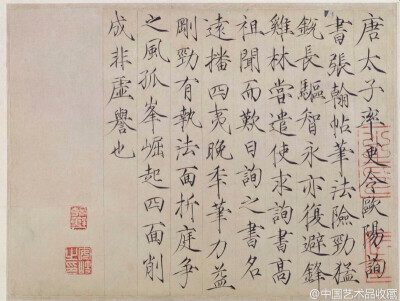 唐太子率更令歐陽詢
書張翰帖筆法險勁猛
銳長驅智永亦復避鋒
雞林嘗遣使求詢書高
祖聞而歎曰詢之書名
遠播四夷晚年筆力益
剛勁有執法面折庭爭
之風孤峯崛起四面削
成非虛譽也
@中国艺术品收藏